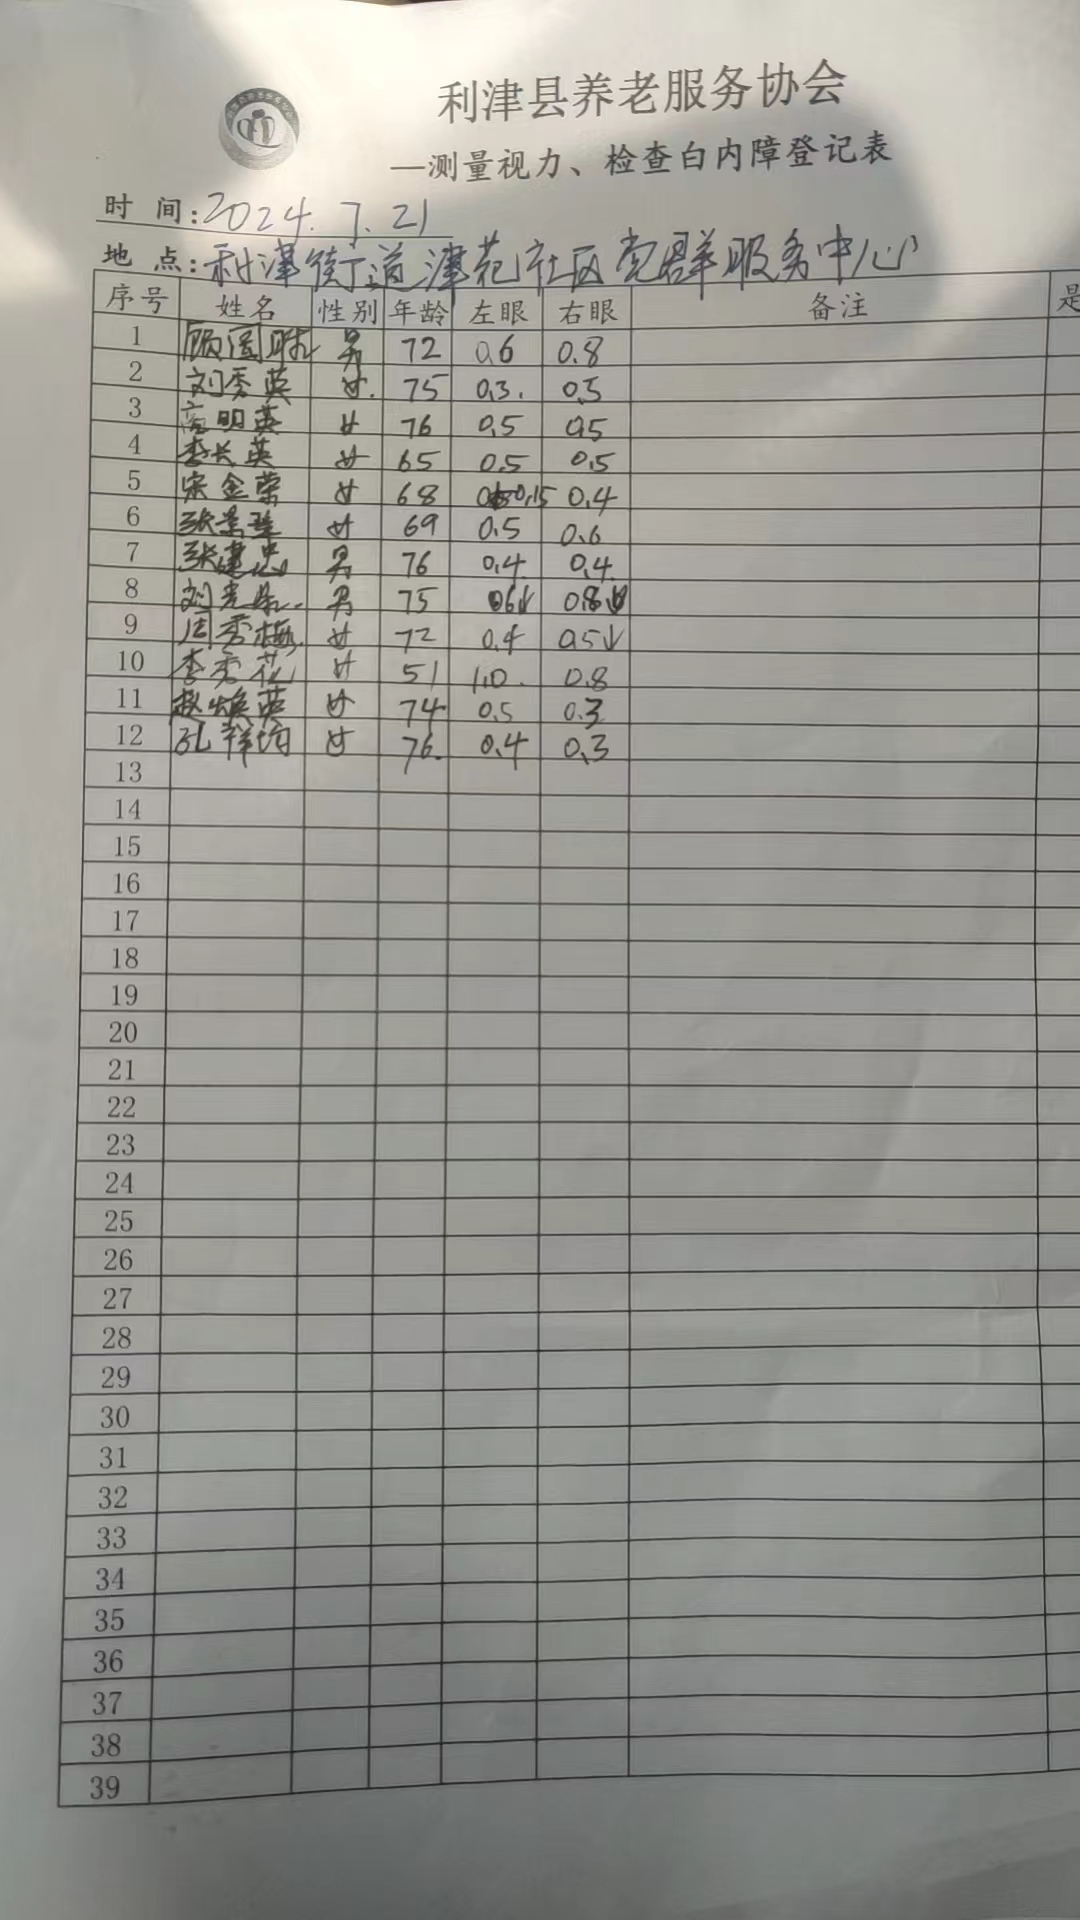 利津县养老服务协会
—测量视力、检查白内障登记表
时 间:2024.7.21
地 点:利津街道津苑社区党群服务中心
序号 姓名 性别 年龄 左眼 右眼 备注 是
1 顾国 男 72 0.6 0.8
2 刘秀英 女. 75 0.3. 0.5
3 高明英 女 76 0.5 0.5
4 李长英 女 65 0.5 0.5
5 宋金荣 女 68 0.15 0.4
6 张景 女 69 0.5 0.6
7 张建忠 男 76 0.4. 0.4.
8 刘 男 75 0.6↓ 0.8↓
9 周秀梅. 女 72 0.4 0.5↓
10 李秀花 女 51 1.0. 0.8
11 赵焕英 女 74 0.5 0.3
12 孔祥 女 76. 0.4 0.3
13
14
15
16
17
18
19
20
21
22
23
24
25
26
27
28
29
30
31
32
33
34
35
36
37
38
39